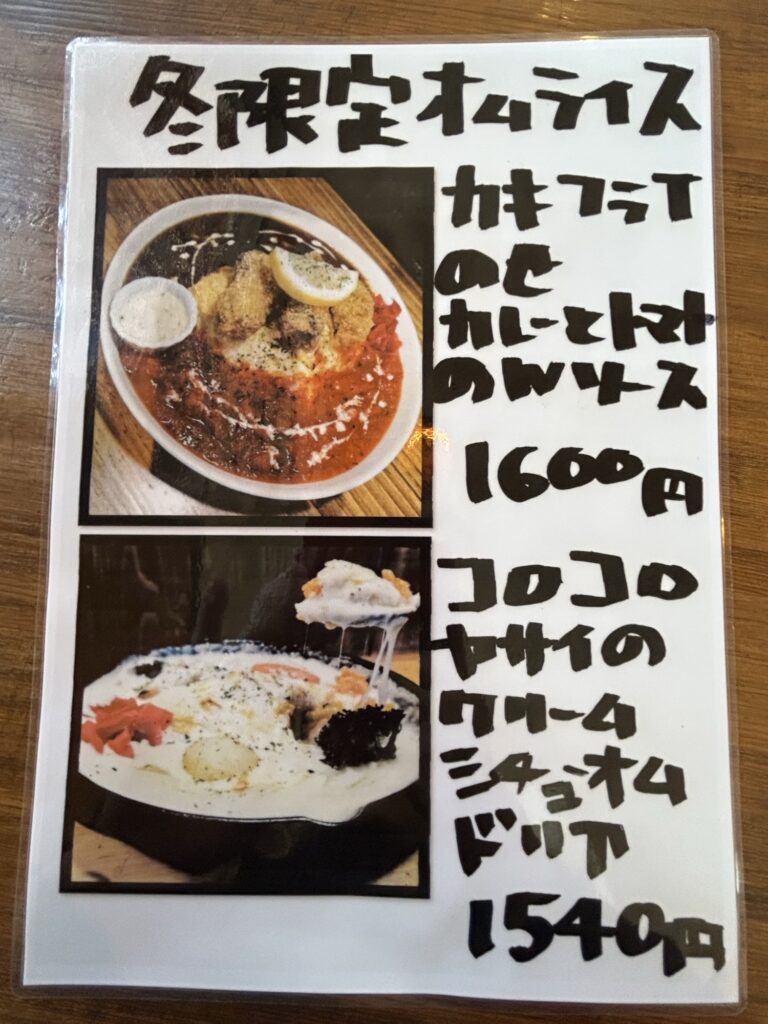 冬限定オムライス
カキフライ
のせ
カレーとトマト
のWソース
1600円
コロコロ
ヤサイの
クリーム
シチューオム
ドリア
1540円